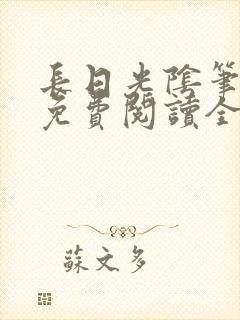 長日光陰筆
免費閱讀全
蘇文多